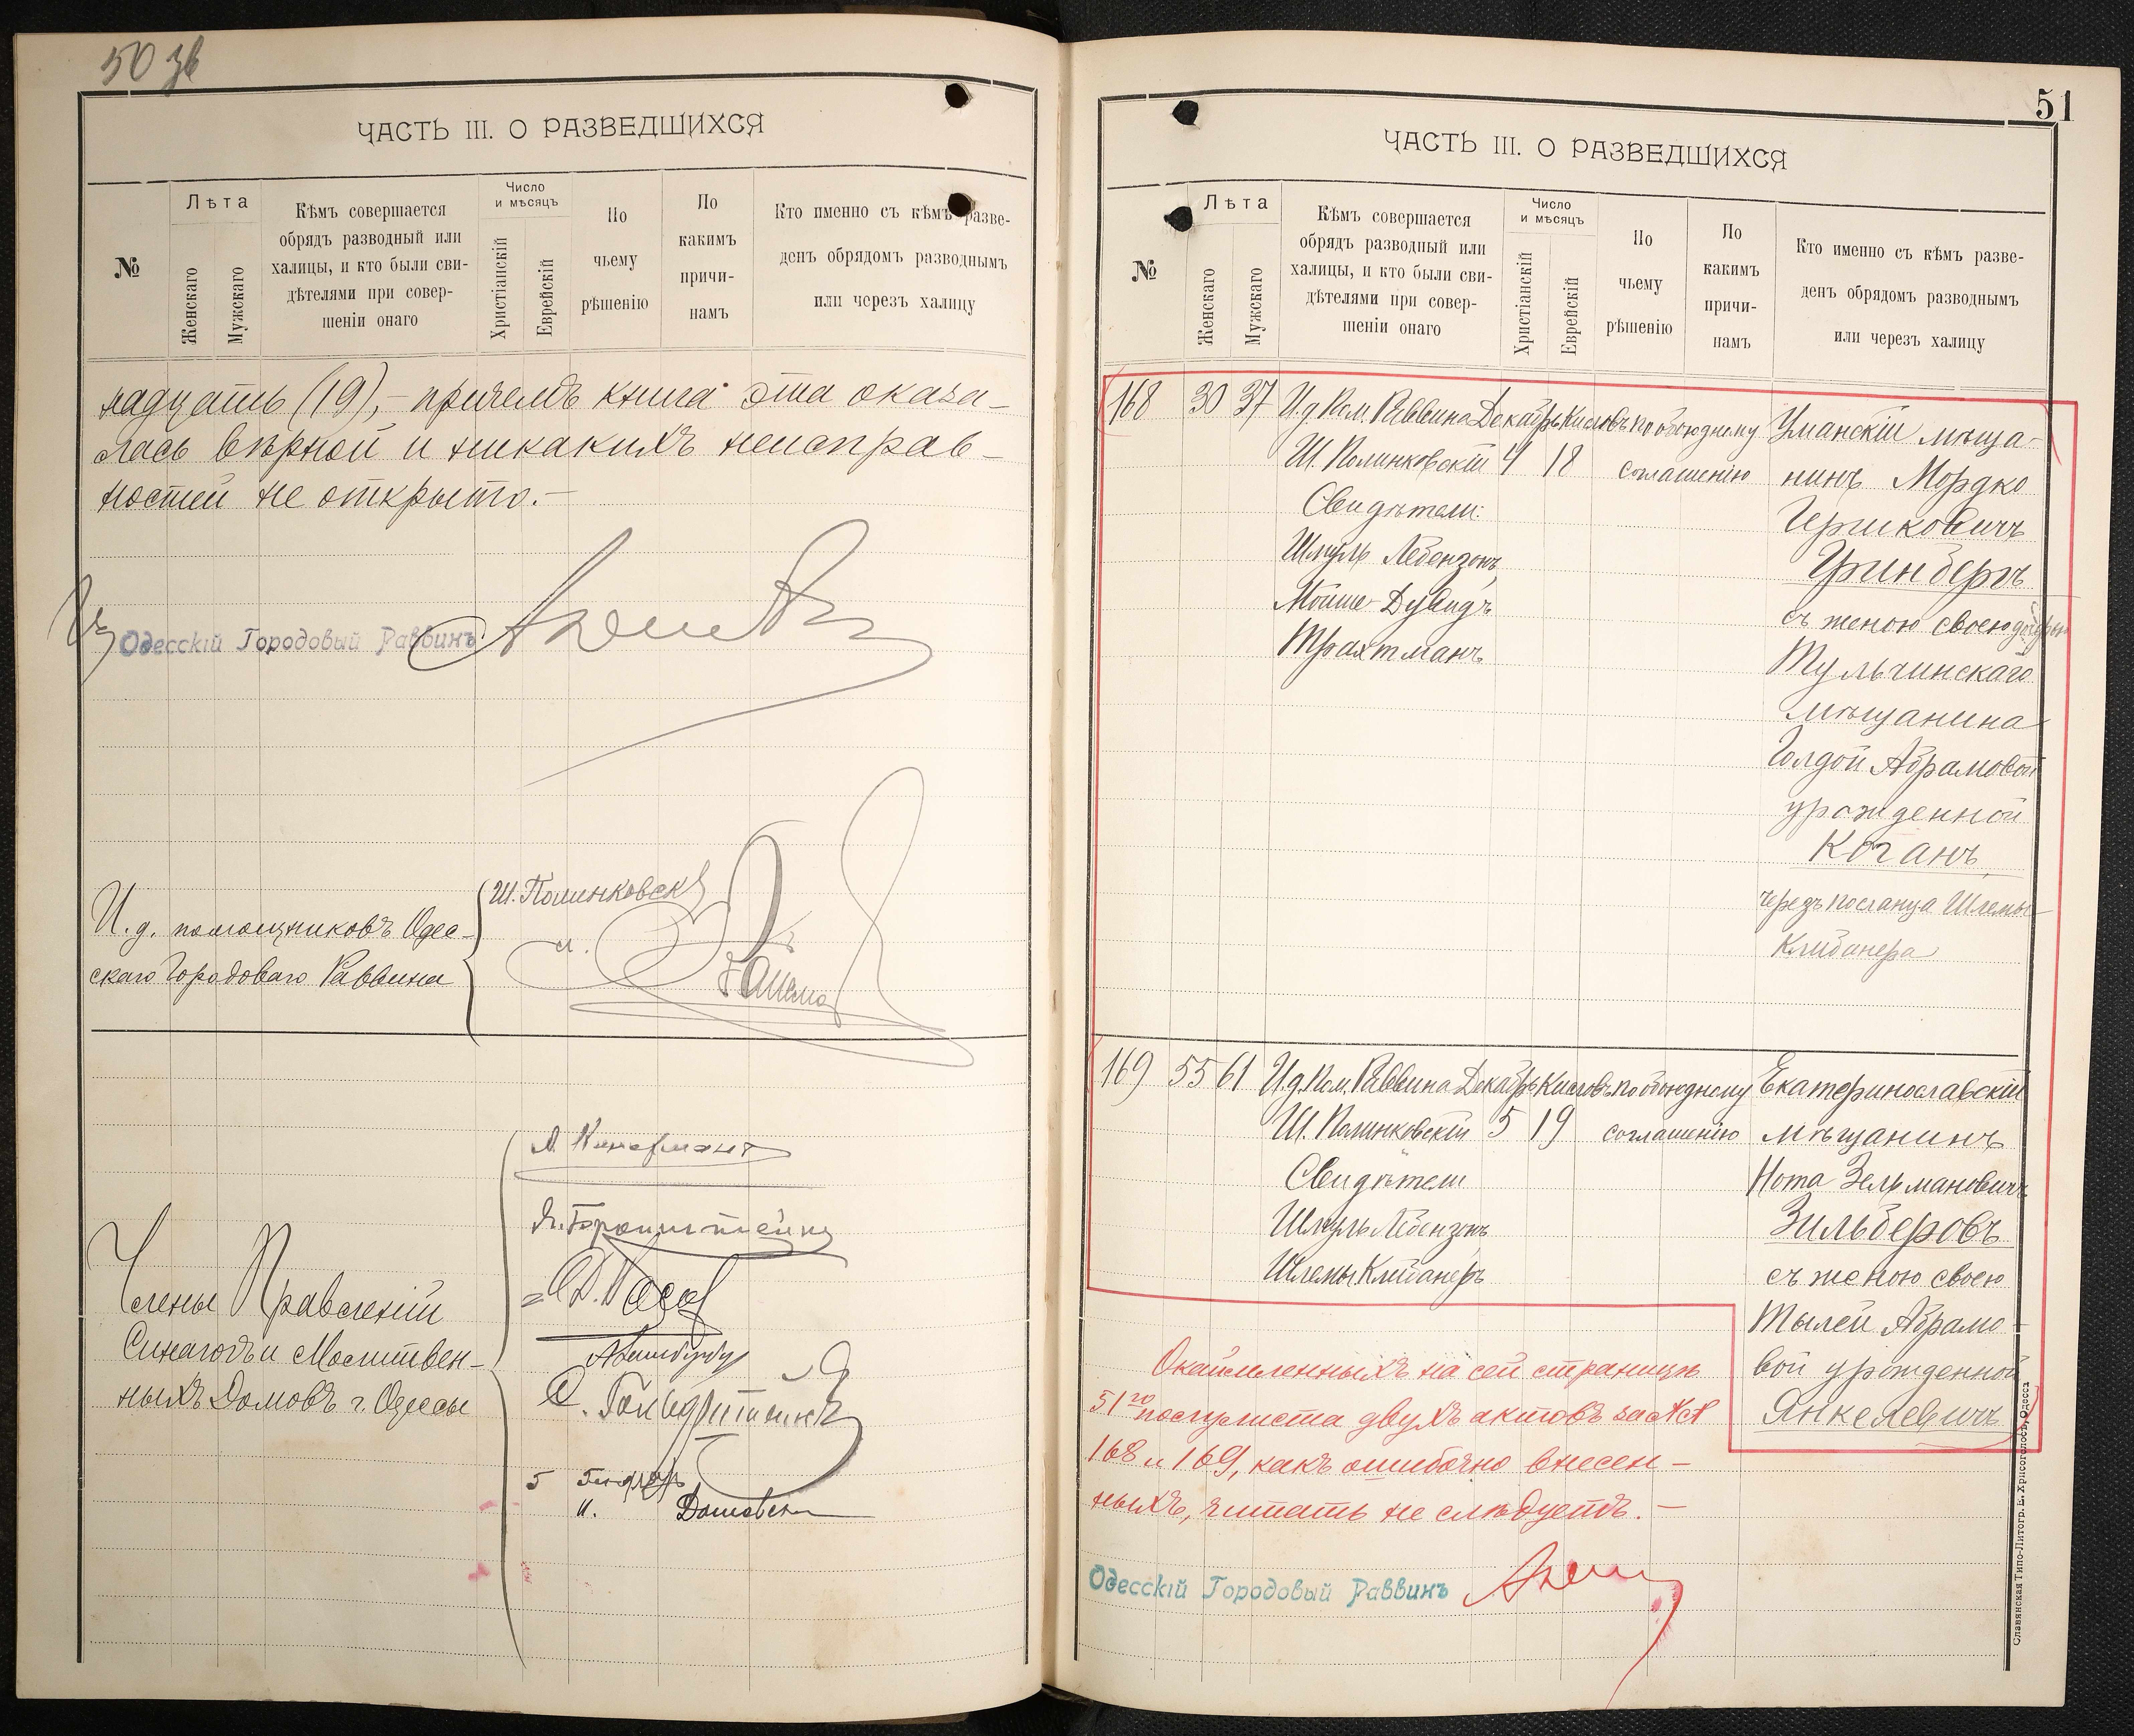 50 зв
ЧАСТЬ III. О РАЗВЕДШИХСЯ
№
Лѣта
Женскаго
Мужскаго
Кѣмъ совершается
обрядъ разводный или
халицы, и кто были сви-
дѣтелями при совер-
шеніи онаго
Число
и мѣсяцъ
Христіанскій
Еврейскій
По
чьему
рѣшенію
По
какимъ
причи-
намъ
Кто именно съ кѣмъ разве-
денъ обрядомъ разводнымъ
или черезъ халицу
надцать (19),- причемъ книга эта оказа-
лась вѣрной и никакихъ неисправ-
ностей не открыто.-
Одесскій Городовый Раввинъ
И. д. помощниковъ Одес-
скаго Городоваго Раввина
Ш. Полинковскій
Члены Правленій
Синагогъ и Молитвен-
ныхъ Домовъ г. Одессы
51
ЧАСТЬ III. О РАЗВЕДШИХСЯ
№
Лѣта
Женскаго
Мужскаго
Кѣмъ совершается
обрядъ разводный или
халицы, и кто были сви-
дѣтелями при совер-
шеніи онаго
Число
и мѣсяцъ
Христіанскій
Еврейскій
По
чьему
рѣшенію
По
какимъ
причи-
намъ
Кто именно съ кѣмъ разве-
денъ обрядомъ разводнымъ
или черезъ халицу
168 30 37 И. д. Пом. Раввина Декабрь Кислевъ по обоюдному Уманскій мѣща-
Ш. Полинковскій 4 18 соглашенію нинъ Мордко
Свидѣтели: Гершковичъ
Шмуль Лебензонъ, Гринбергъ
Мойше-Дувидъ съ женою своею дочерью
Трахтманъ Тульчинскаго
мѣщанина
Голдой Абрамовой
урожденной
Коганъ,
чрезъ посланца Шлемы
Клибанера
169 55 61 И. д. Пом. Раввина Декабрь Кислевъ по обоюдному Екатеринославскій
Ш. Полинковскій 5 19 соглашенію мѣщанинъ
Свидѣтели Нота Зельмановичъ
Шмуль Лебензонъ Зильберовъ
Шлемы Клибанеръ съ женою своею
Тылей Абрамо-
вой урожденной
Янкелевичъ
Окаймленныхъ на сей страницѣ
51го полулиста двухъ актовъ за №№
168 и 169, какъ ошибочно внесен-
ныхъ, читать не слѣдуетъ.-
Одесскій Городовый Раввинъ
Славянская Типо-Литогр. Е. Хрисогелосъ, Одесса